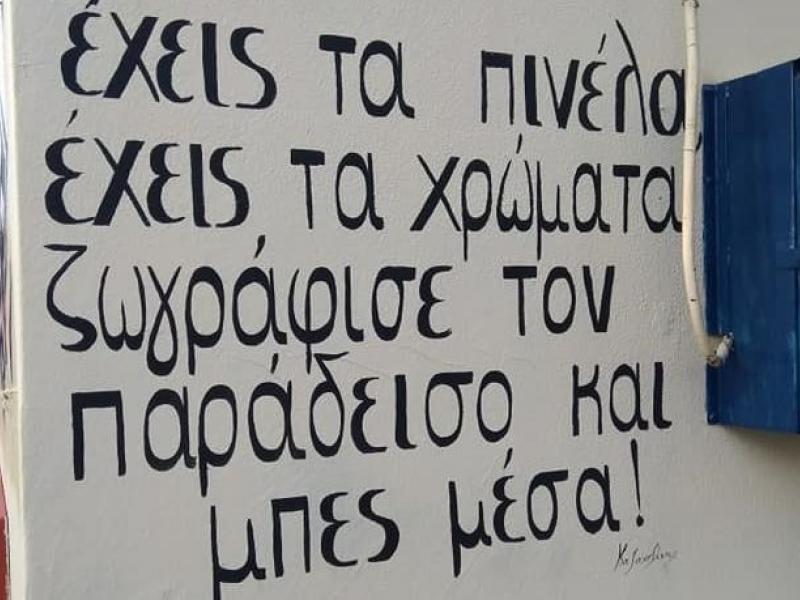 έχεις τα πινέλα,
έχεις τα χρώματα
ζωγράφισε τον
παράδεισο και
μπες μέσα!
Καζαντζάκης